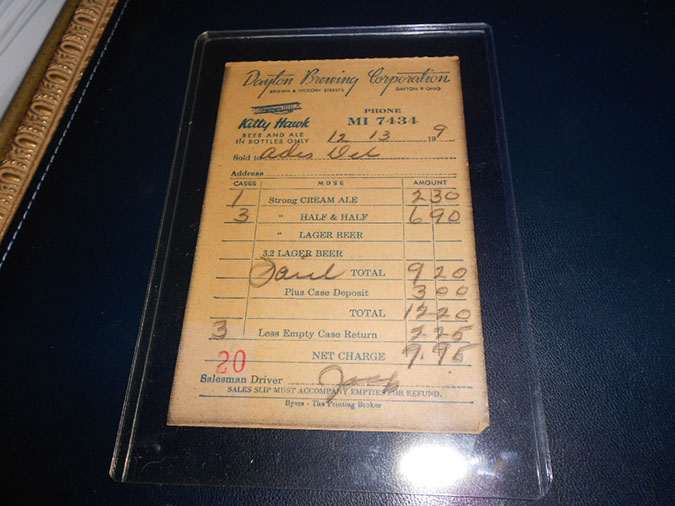 Dayton Brewing Corporation
BROWN & HICKORY STREETS DAYTON 9 OHIO
PHONE
Kitty Hawk MI 7434
BEER AND ALE
IN BOTTLES ONLY 12 13 19 9
Sold to
Address
CASES MDSE AMOUNT
1 Strong CREAM ALE 2 30
3 " HALF & HALF 6 90
" LAGER BEER
3.2 LAGER BEER
Paid TOTAL 9 20
Plus Case Deposit 3 00
TOTAL 12 20
3 Less Empty Case Return 2 25
20 NET CHARGE 9.95
Salesman Driver
SALES SLIP MUST ACCOMPANY EMPTIES FOR REFUND.
Byers - The Printing Broker